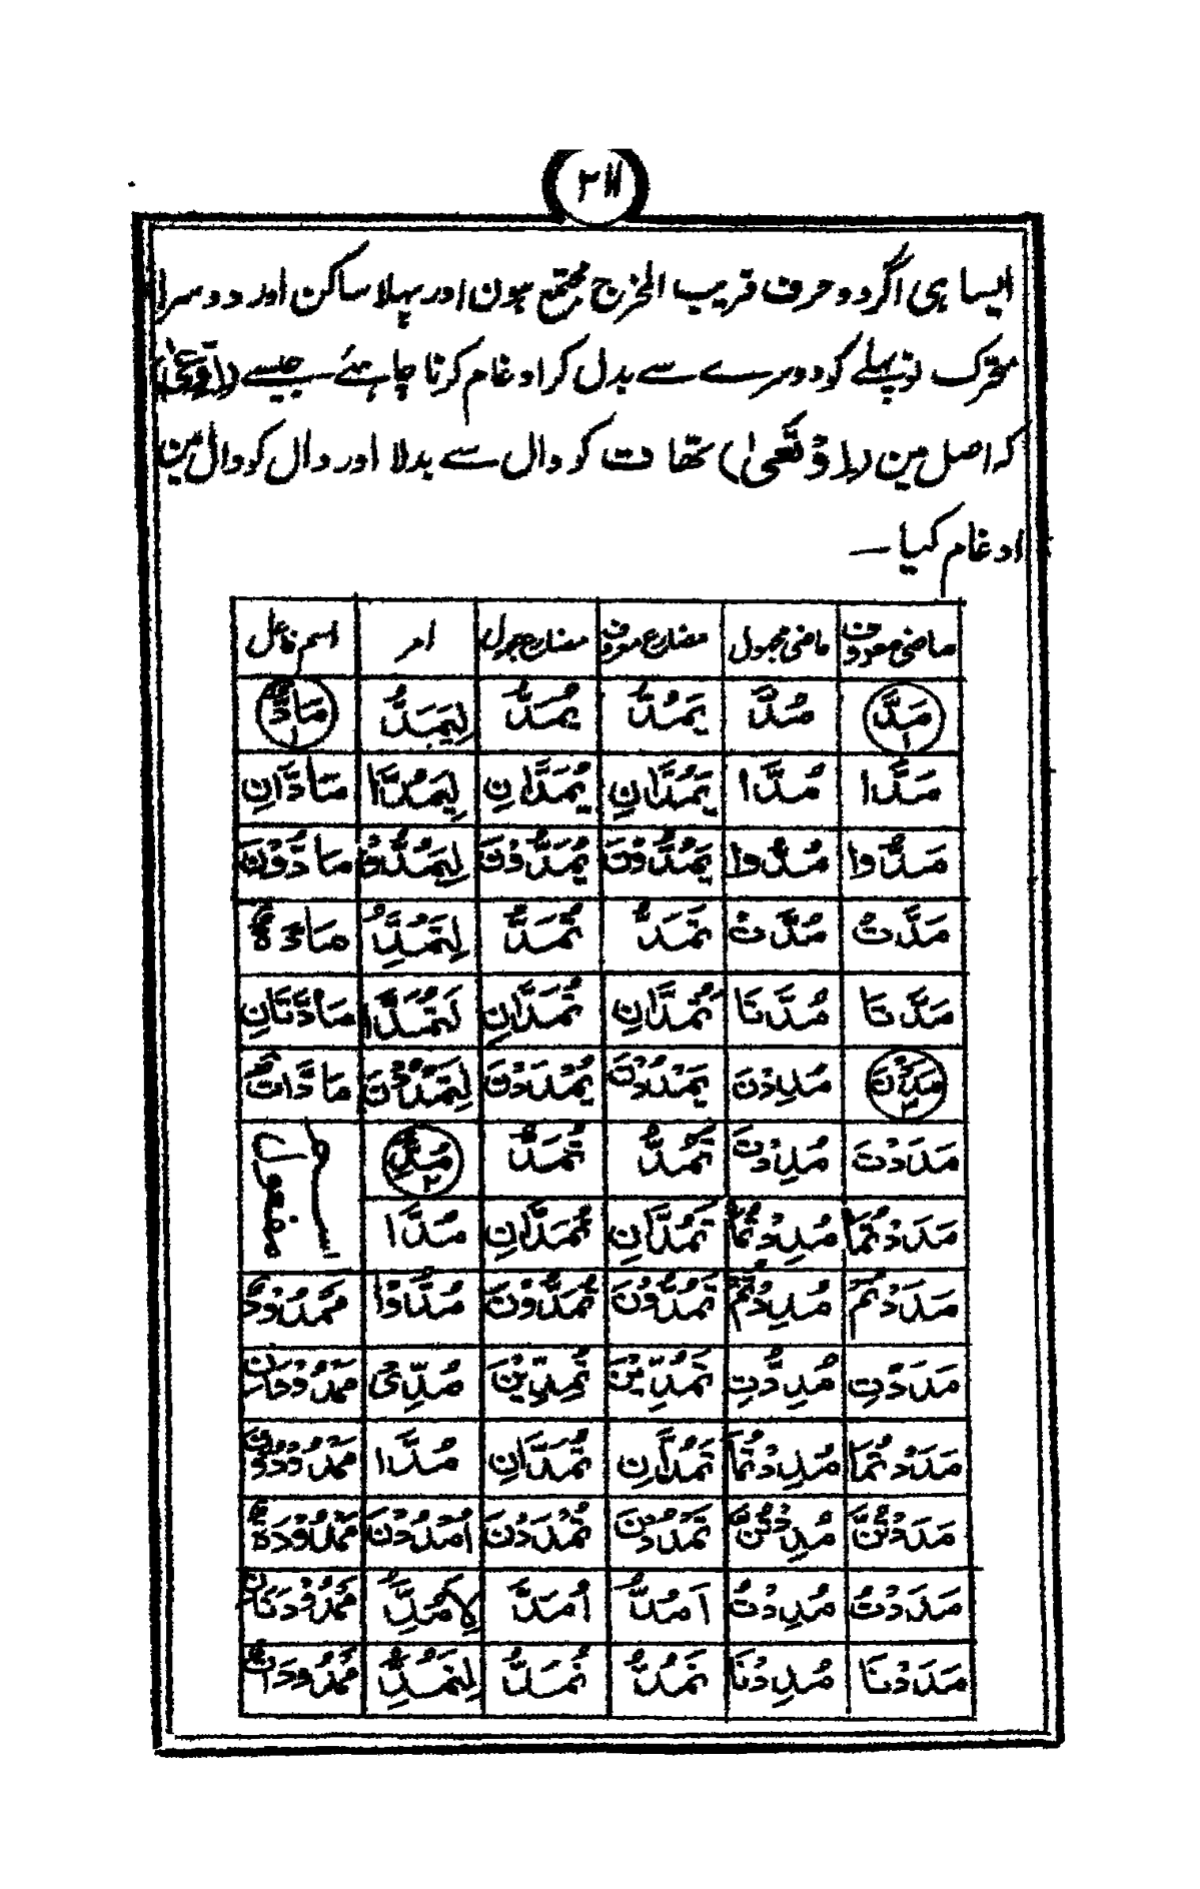 ایسا ہی اگر دو حرف قریب المخرج مجتمع ہون اور پہلا ساکن اور دوسرا
متحرک تو پہلے کو دوسرے سے بدل کر ادغام کرنا چاہئے جیسے
کہ اصل مین تھا ت کو دال سے بدلا اور دال کو دال مین
ادغام کیا ۔
ماضی معروف ماضی مجہول مضارع معروف مضارع مجہول امر اسم فاعل
مَدَّ ۱ مُدَّ یَمُدُّ یُمَدُّ لِیَمُدَّ مَادٌّ ۱
مَدَّا مُدَّا یَمُدَّانِ یُمَدَّانِ لِیَمُدَّا مَادَّانِ
مَدُّوا مُدُّوا یَمُدُّوْنَ یُمَدُّوْنَ لِیَمُدُّوْا مَادُّوْنَ
مَدَّتْ مُدَّتْ تَمُدُّ تُمَدُّ لِتَمُدَّ مَادَّةٌ
مَدَّتَا مُدَّتَا تَمُدَّانِ تُمَدَّانِ لِتَمُدَّا مَادَّتَانِ
مَدَدْنَ ۳ مُدِدْنَ یَمْدُدْنَ یُمْدَدْنَ لِیَمْدُدْنَ مَادَّاتٌ
مَدَدْتَ مُدِدْتَ تَمُدُّ تُمَدُّ مُدَّ ۲ اسم مفعول
مَدَدْتُمَا مُدِدْتُمَا تَمُدَّانِ تُمَدَّانِ مُدَّا
مَدَدْتُمْ مُدِدْتُمْ تَمُدُّوْنَ تُمَدُّوْنَ مُدُّوْا مَمْدُوْدٌ
مَدَدْتِ مُدِدْتِ تَمُدِّیْنَ تُمَدِّیْنَ مُدِّیْ مَمْدُوْدَانِ
مَدَدْتُمَا مُدِدْتُمَا تَمُدَّانِ تُمَدَّانِ مُدَّا مَمْدُوْدُوْنَ
مَدَدْتُنَّ مُدِدْتُنَّ تَمْدُدْنَ تُمْدَدْنَ اُمْدُدْنَ مَمْدُوْدَةٌ
مَدَدْتُ مُدِدْتُ اَمُدُّ اُمَدُّ لِاَمُدَّ مَمْدُوْدَتَانِ
مَدَدْنَا مُدِدْنَا نَمُدُّ نُمَدُّ لِنَمُدَّ مَمْدُوْدَاتٌ